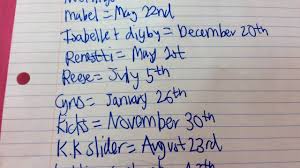 mabel = May 22nd
Isabelle + digby = December 20th
Resetti = May 1st
Reese = July 5th
Cyrus = January 26th
Kicks = November 30th
K.K slider = August 23rd